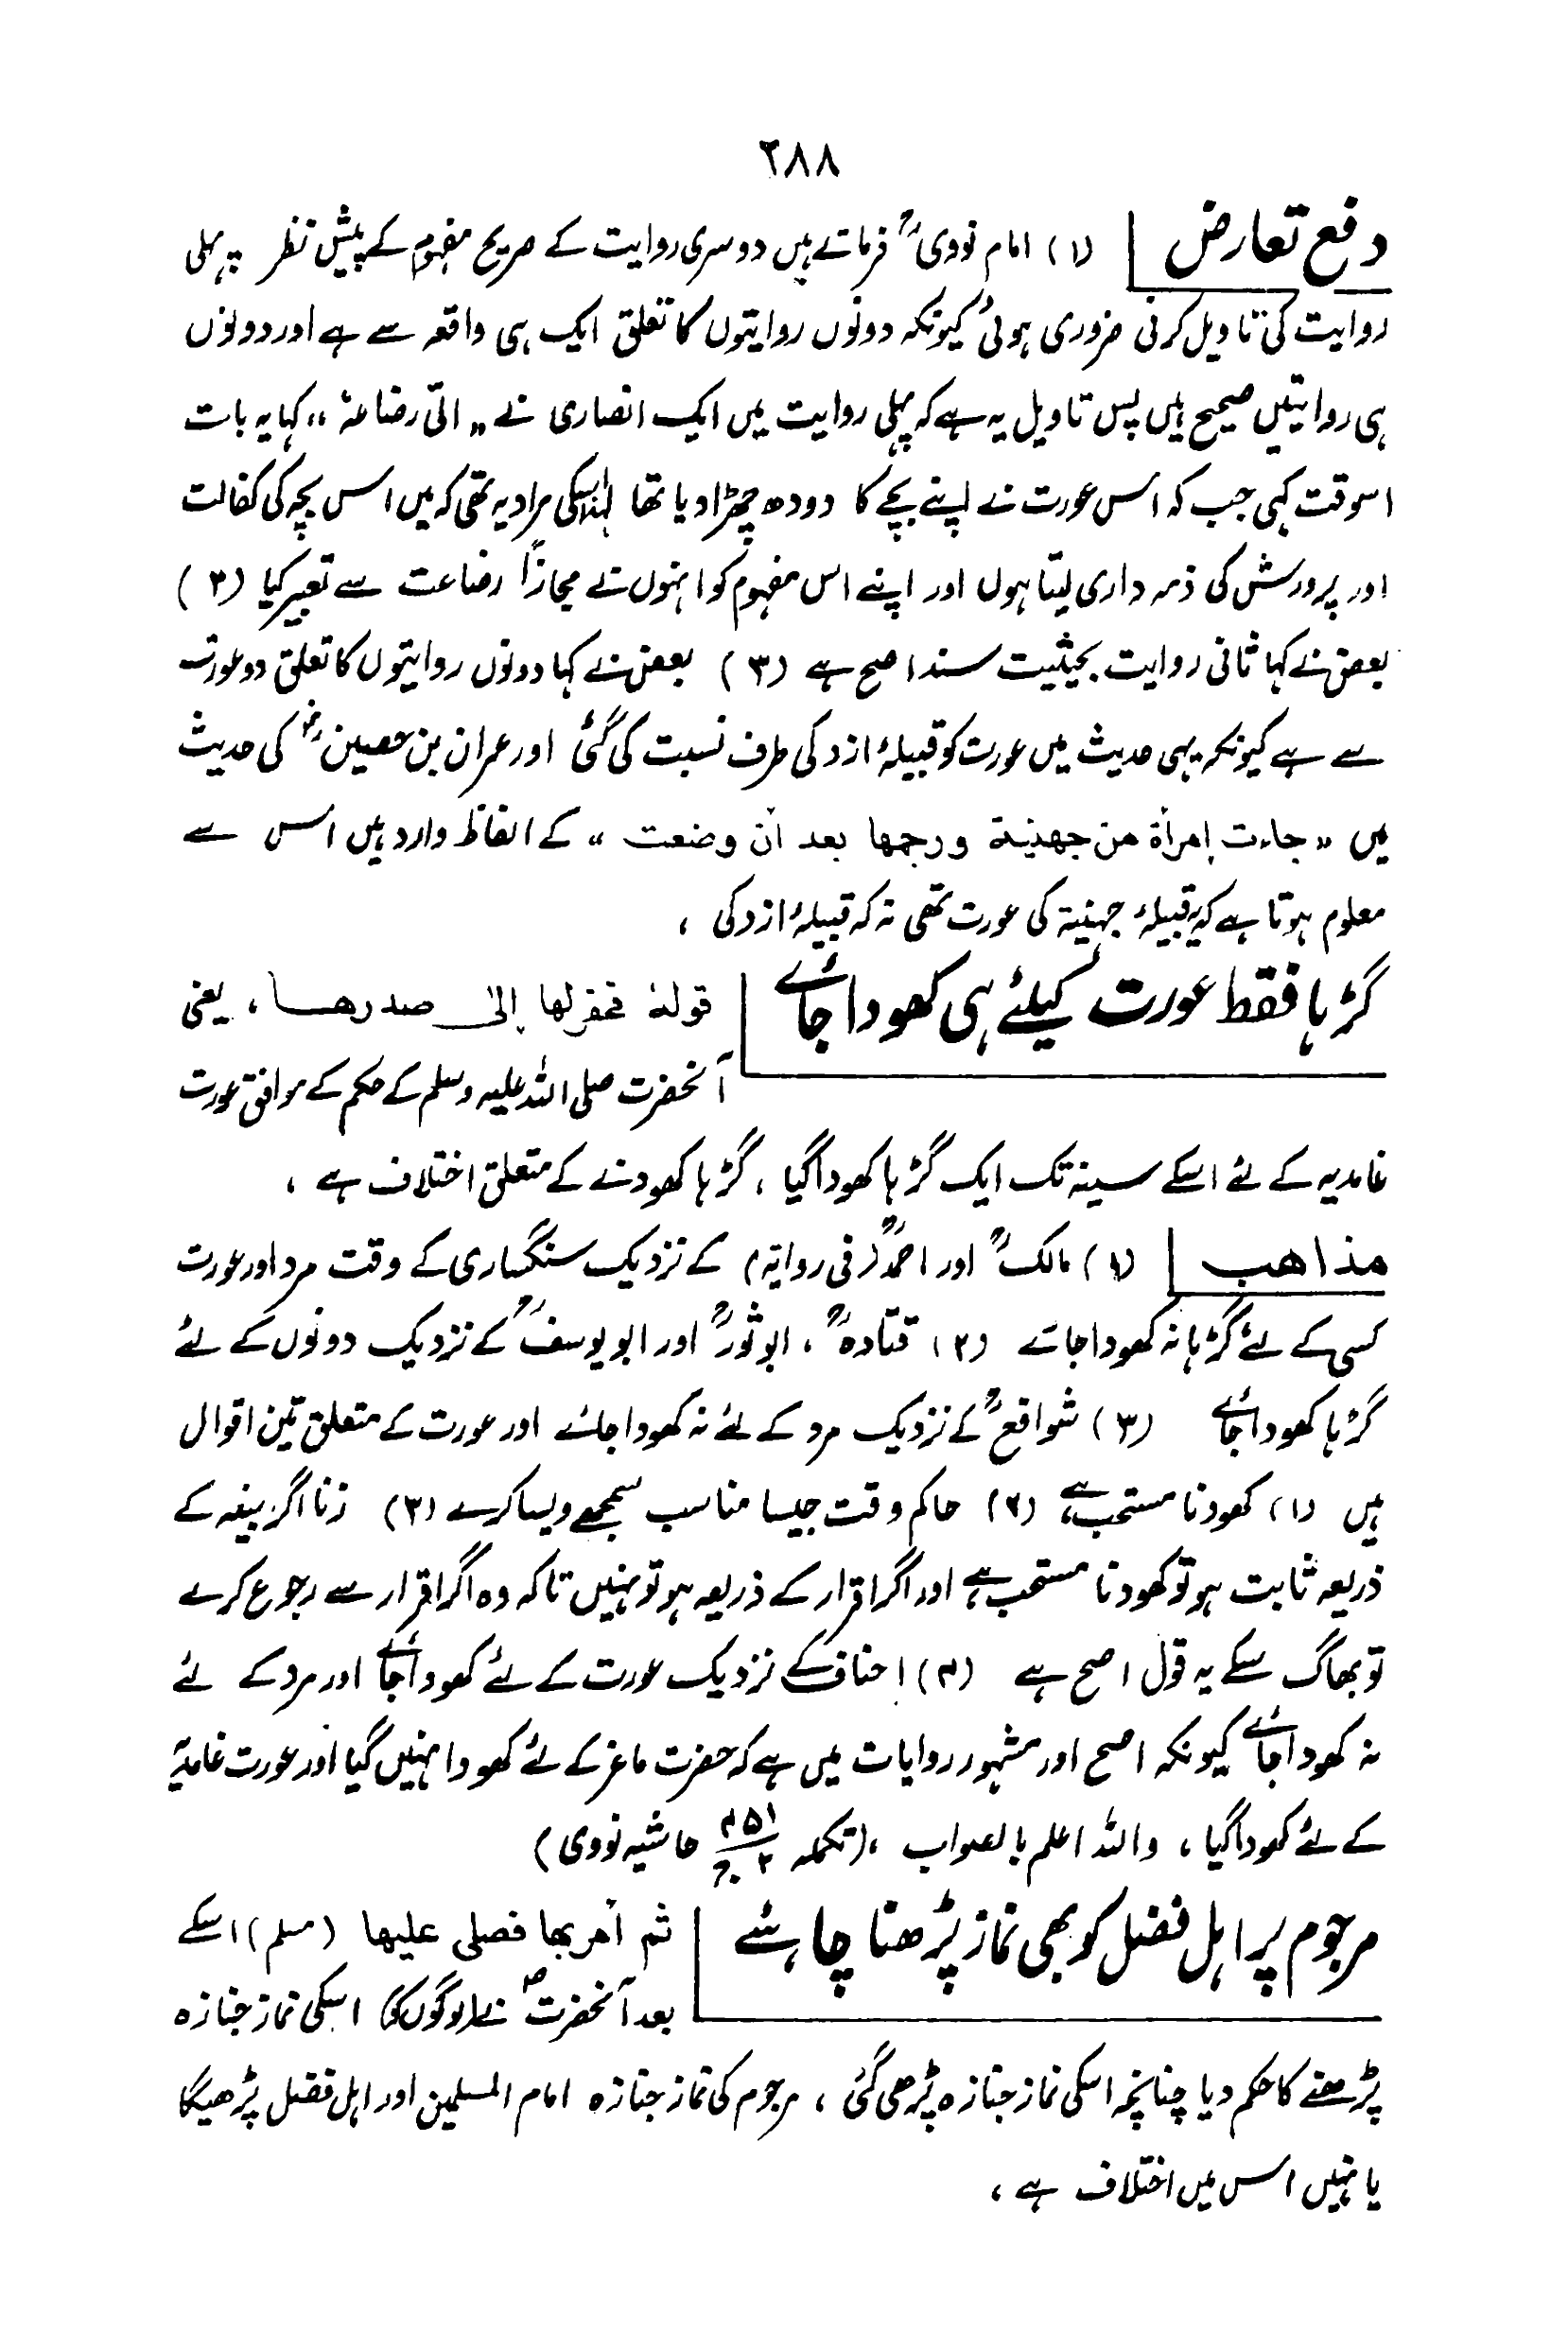 ۲۸۸
دفع تعارض (۱) امام نوویؒ فرماتے ہیں دوسری روایت کے صریح مفہوم کے پیش نظر پہلی
روایت کی تاویل کرنی ضروری ہوئی کیونکہ دونوں روایتوں کا تعلق ایک ہی واقعہ سے ہے اور دونوں
ہی روایتیں صحیح ہیں پس تاویل یہ ہے کہ پہلی روایت میں ایک انصاری نے ،، الیّ رضاعہٗ ،، کہا یہ بات
اسوقت کہی جب کہ اُس عورت نے اپنے بچے کا دودھ چھڑا دیا تھا لہٰذا اسکی مراد یہ تھی کہ میں اس بچہ کی کفالت
اور پرورش کی ذمہ داری لیتا ہوں اور اپنے اس مفہوم کو انہوں نے مجازاً رضاعت سے تعبیر کیا (۲)
بعض نے کہا ثانی روایت بحیثیت سند اصح ہے (۳) بعض نے کہا دونوں روایتوں کا تعلق دو عورت
سے ہے کیونکہ پہلی حدیث میں عورت کو قبیلۂ ازد کی طرف نسبت کی گئی اور عمران بن حصینؓ کی حدیث
میں ،، جاءت إمرأة من جهنية ورجمها بعد أن وضعت ،، کے الفاظ وارد ہیں اُس سے
معلوم ہوتا ہے کہ یہ قبیلۂ جہنیۃ کی عورت تھی نہ کہ قبیلۂ ازد کی ،
گڑہا فقط عورت کیلئے ہی کھودا جائے قولهٗ فحفر لها إلى صدرها ، یعنی
آنحضرت صلی اللہ علیہ وسلم کے حکم کے موافق عورت
غامدیہ کے لئے اسکے سینہ تک ایک گڑہا کھودا گیا ، گڑہا کھودنے کے متعلق اختلاف ہے ،
مذاهب (۱) مالکؒ اور احمدؒ (فی روایۃ) کے نزدیک سنگساری کے وقت مرد اور عورت
کسی کے لئے گڑہا نہ کھودا جائے (۲) قتادہؒ ، ابو ثورؒ اور ابو یوسفؒ کے نزدیک دونوں کے لئے
گڑہا کھودا جائے (۳) شوافعؒ کے نزدیک مرد کے لئے نہ کھودا جائے اور عورت کے متعلق تین اقوال
ہیں (۱) کھودنا مستحب ہے (۲) حاکم وقت جیسا مناسب سمجھے ویسا کرے (۳) زنا اگر بینہ کے
ذریعہ ثابت ہو تو کھودنا مستحب ہے اور اگر اقرار کے ذریعہ ہو تو نہیں تاکہ وہ اگر اقرار سے رجوع کرے
تو بھاگ سکے یہ قول اصح ہے (۴) احناف کے نزدیک عورت کے لئے کھودا جائے اور مرد کے لئے
نہ کھودا جائے کیونکہ اصح اور مشہور روایات میں ہے کہ حضرت ماعز کے لئے کھودا نہیں گیا اور عورت غامدیۃ
کے لئے کھودا گیا ، واللہ اعلم بالصواب ، (تکملہ ۴۵۱/ج۲ حاشیہ نووی)
مرجوم پر اہل فضل کو بھی نماز پڑھنا چاہئے ثم أمر بها فصلى عليها (مسلم) اسکے
بعد آنحضرتؐ نے لوگوں کو اسکی نماز جنازہ
پڑھنے کا حکم دیا چنانچہ اسکی نماز جنازہ پڑھی گئی ، مرجوم کی نماز جنازہ امام المسلمین اور اہل فضل پڑھیگا
یا نہیں اس میں اختلاف ہے ،